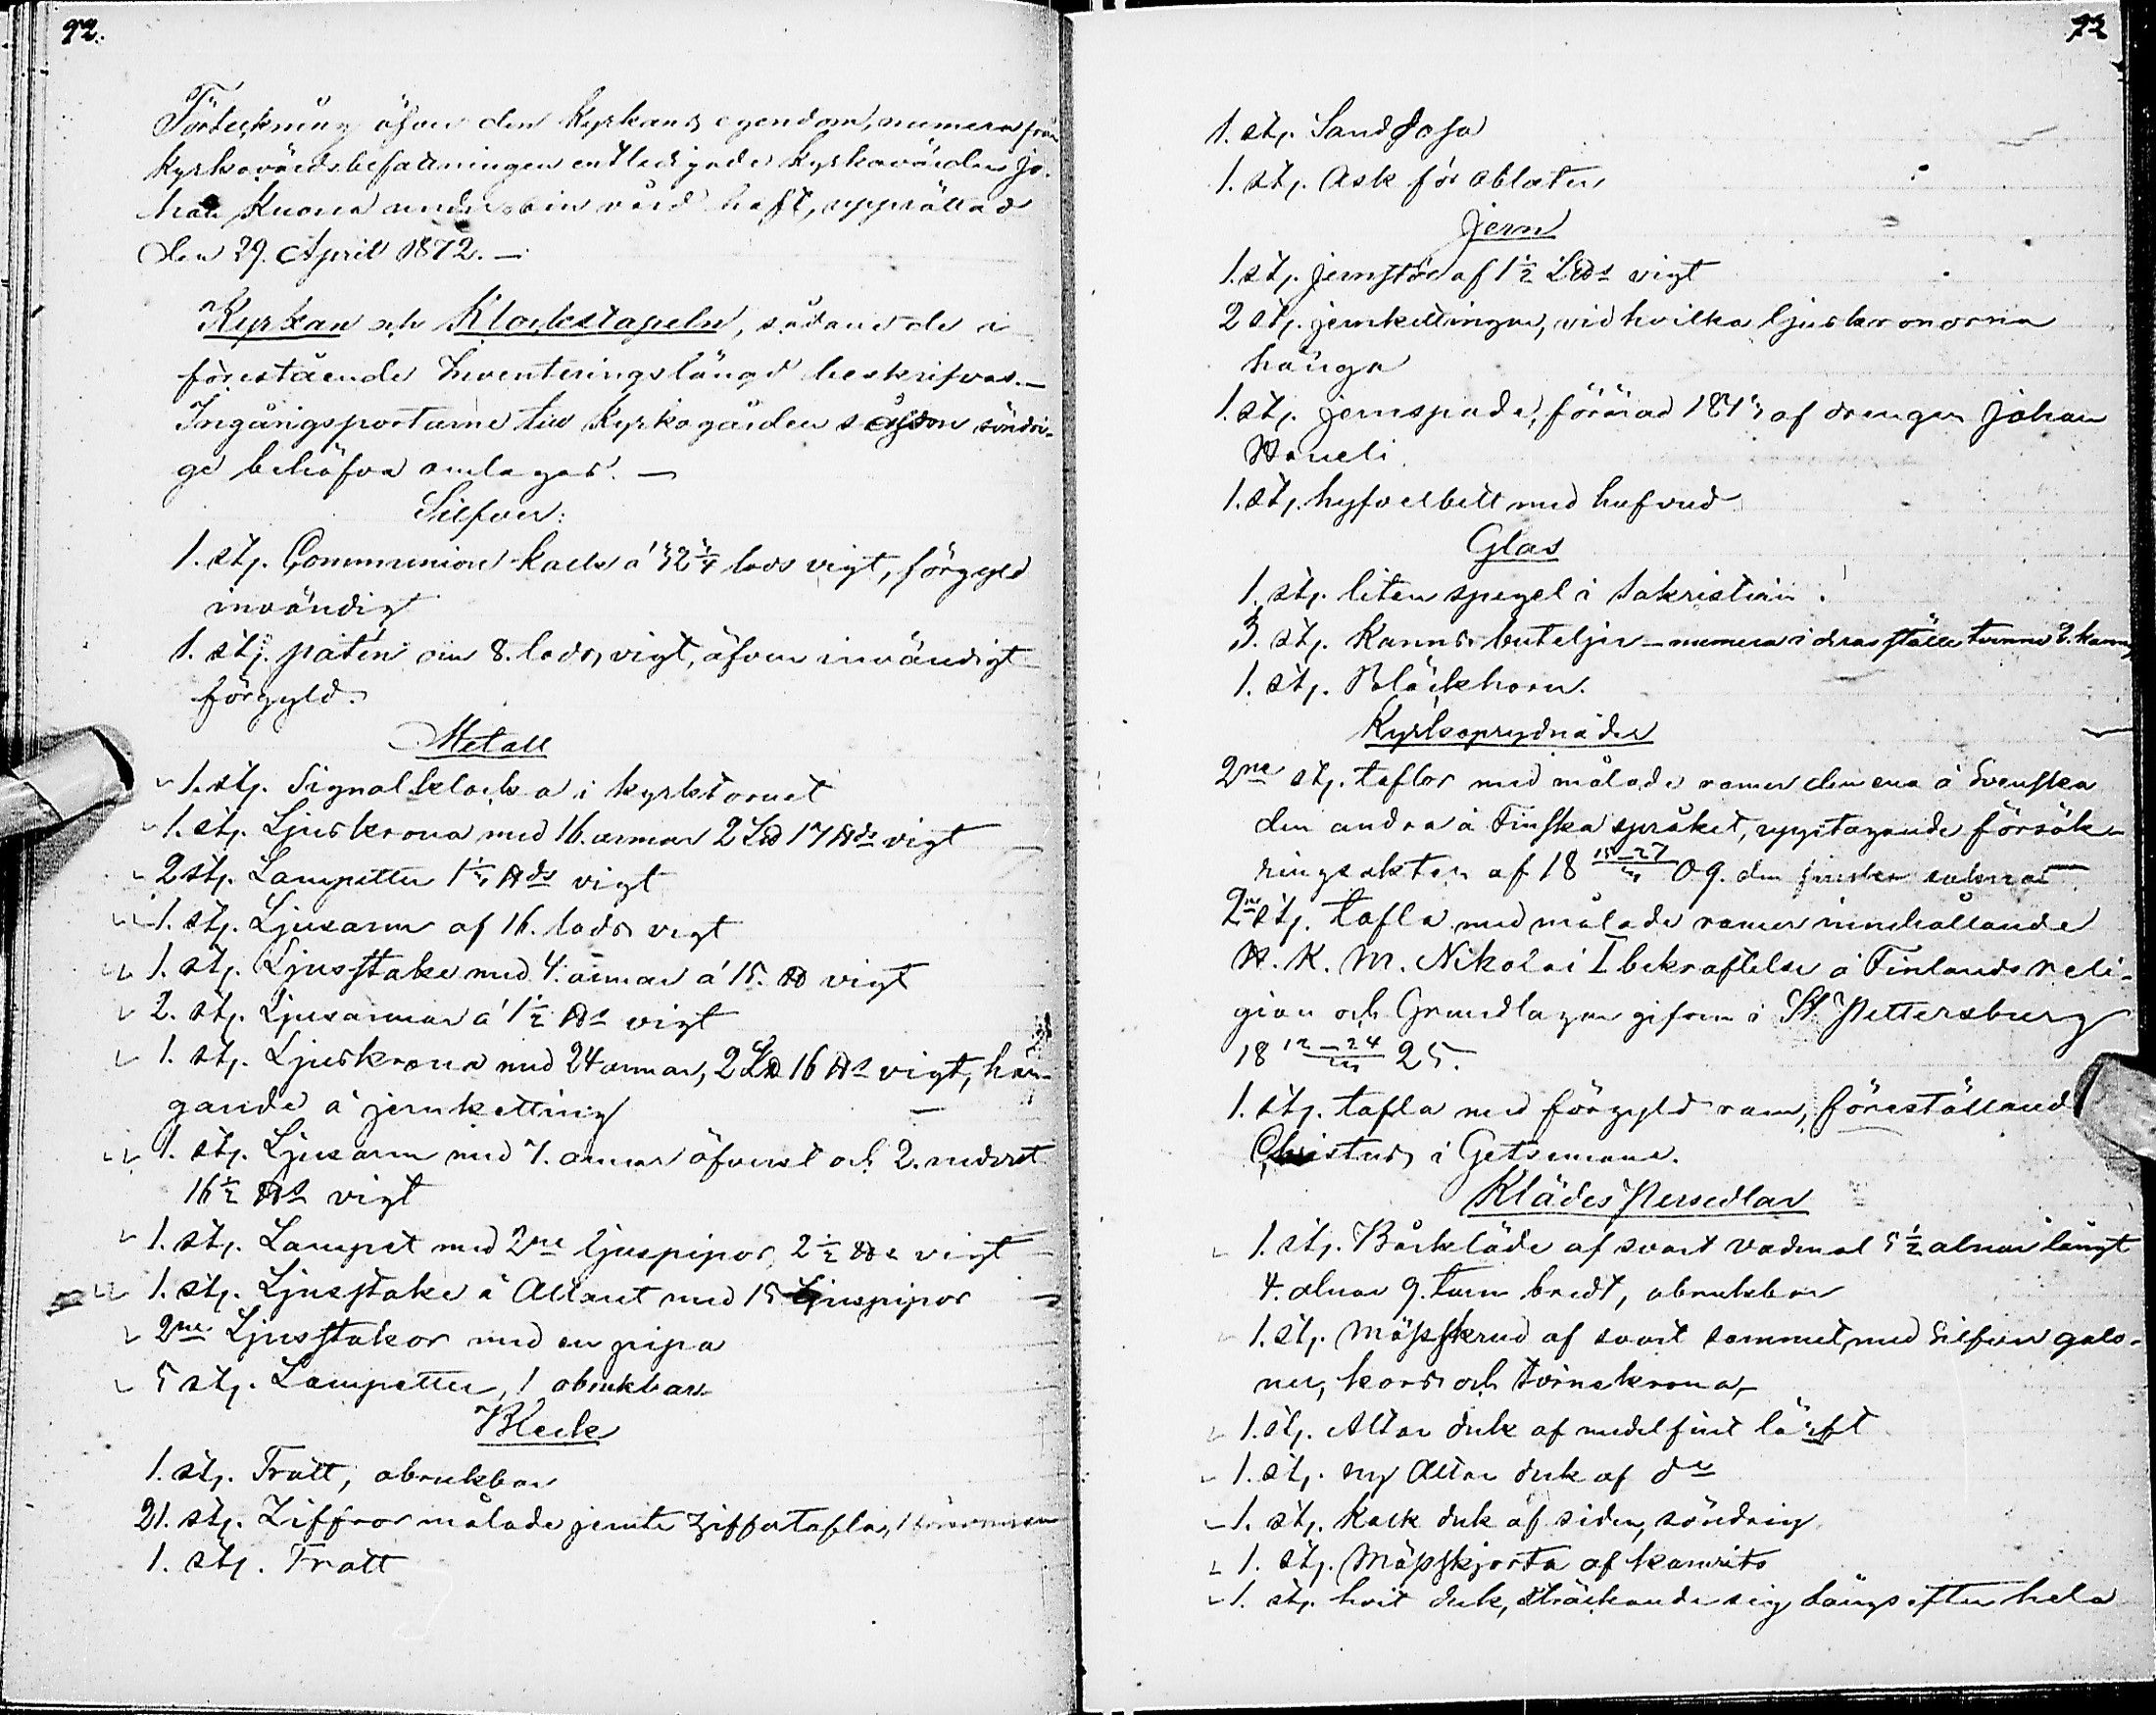 92.
Förteckning öfver den Kyrkans egendom, numera från
kyrkovärdsbefattningen entledigade Kyrkovärden Jo-
han Kuona under sin vård haft, upprättad
den 29. April 1872. —
Kyrkan och Klockstapeln, sådane de i
förestående Inventeringslängd beskrifvas. —
Ingångsportarne till Kyrkogården såsom söndri-
ge behöfva omlagas. —
Silfver:
1. stj. Communion kalk á 32 1/4 lods vigt, förgyld
invändigt
1. stj. paten om 8. lods vigt, äfven invändigt
förgyld.
Metall
1. stj. Signalklocka i kyrktornet
1. stj. Ljuskrona med 16. armar 2 L℔ 17 ℔ds vigt
2 stj. Lampetter 1 1/2 ℔ds vigt
1. stj. Ljusarm af 16. lods vigt
1. stj. Ljusstake med 4. armar á 15. ℔ vigt
2. stj. Ljusarmar á 1 1/2 ℔s vigt
1. stj. Ljuskrona med 24 armar, 2 L℔ 16 ℔s vigt, hän-
gande å jernketting
1. stj. Ljusarm med 7. armar öfverst och 2. nederst
16 1/2 ℔s vigt
1. stj. Lampet med 2ne ljuspipor, 2 1/2 ℔s vigt
1. stj. Ljusstake å Altaret med 15 Ljuspipor
2ne Ljusstakor med en pipa
5 stj. Lampetter, 1 obrukbar
Bleck
1. stj. Tratt, obrukbar
21. stj. Ziffror målade jemte Ziffertafla,
1. stj. Tratt
73
1. stj. Sanddosa
1. stj. Ask för oblater
Jern
1. stj. Jernstör af 1 1/2 L℔s vigt
2 stj. jernkettingar, vid hvilka ljuskronorna
hänga
1. stj. jernspade, förärad af drengen Johan
1. stj. hyfvelbett med hufvud
Glas
1. stj. liten spegel i Sakristian
3. stj. Kanns buteljer — numera i deras ställe tvenne 2. kanns
1. stj. Bläckhorn.
Kyrkoprydnader
2ne stj. taflor med målade ramar den ena å Svenska
den andra å Finska språket, upptagande försäk-
ringsakten af 18 15—27 09. den finska saknas
2ne stj. tafla med målade ramar innehållande
H. K. M. Nikolai I bekräftelse å Finlands reli-
gion och Grundlagar gifven i St Pettersburg
18 12—24 25.
1. stj. tafla med förgyld ram, föreställand
Christus i Getsemane.
Klädes Persedlar
1. stj. Bårkläde af svart vadmal 5 1/2 alnar långt
4. alnar 9. tum bredt, obrukbar
1. stj. Mässskrud af svart sammet, med Silfver galo-
ner, kors och törnekrona,
1. stj. Altar duk af medelfint lärft
1. stj. ny Altar duk af do
1. stj. kalk duk af siden, söndrig
1. stj. Mässskjorta af
1. stj. hvit duk, sträckande sig längs efter hela